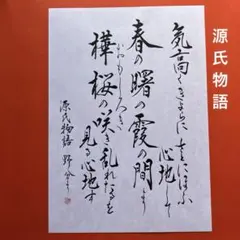 源氏物語
気高くきよらに さとにほふ
心地して
春の曙の霞の間より
おもしろき
樺桜の咲き乱れたるを
見る心地す
源氏物語 野分より